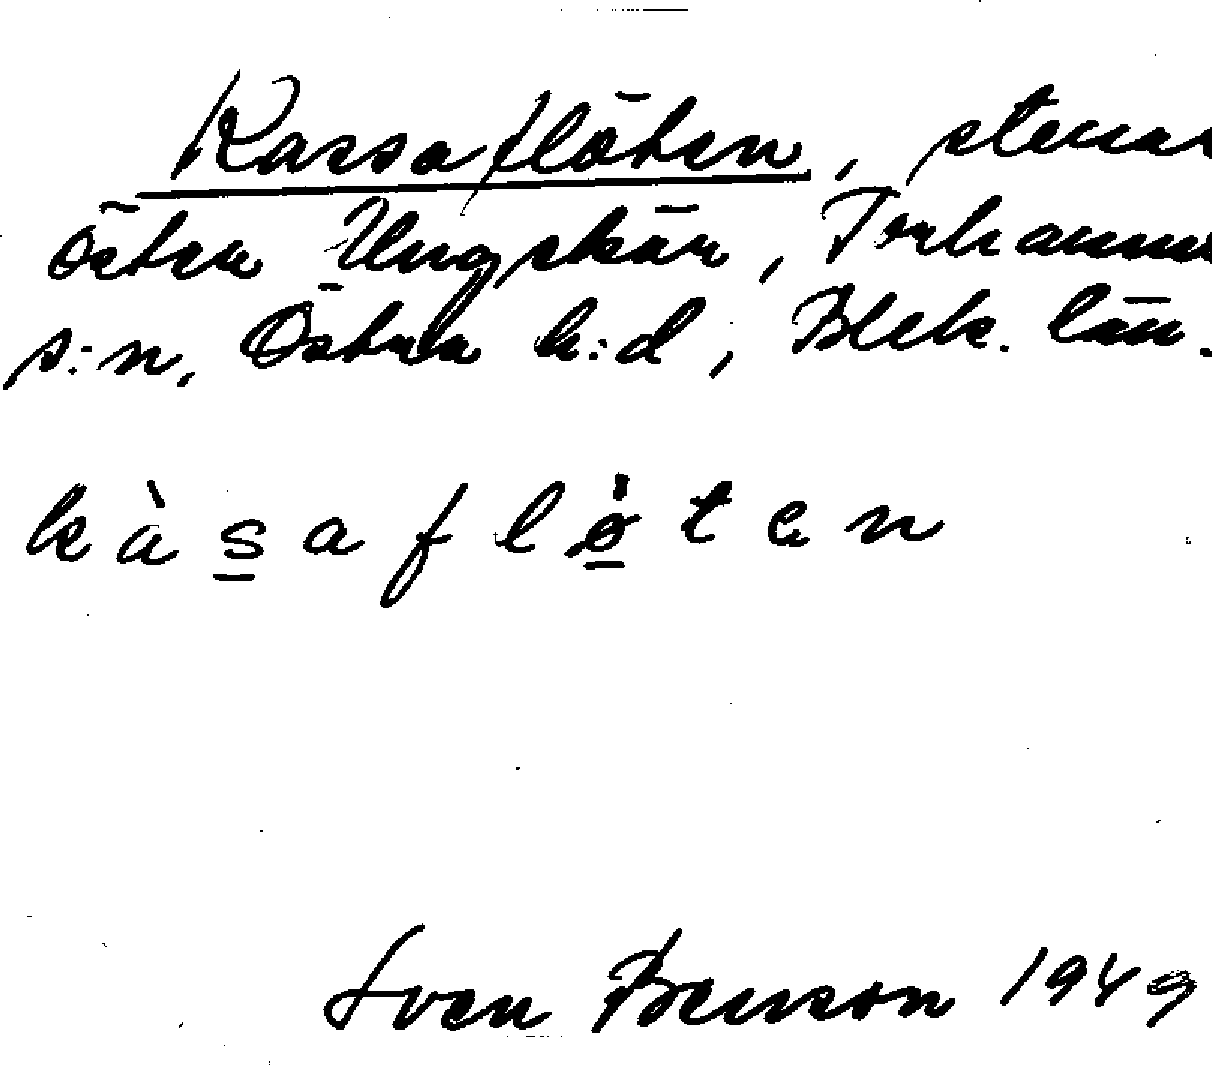 Kassaflöten, stenar
östen Ungskär, Torhamns
s:n, Östra h:d, Blek. län.
kàsaflø̀ten
Sven Benson 1949